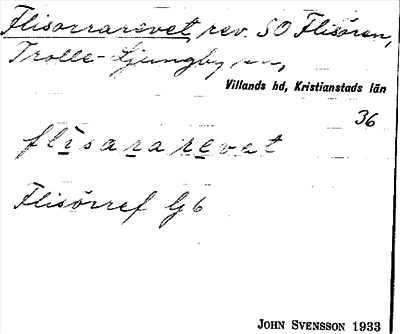 Flisorrarevet, rev. SO Flisören,
Trolle-Ljungby sn,
Villands hd, Kristianstads län
36
flisararevet
Flisörref G6
JOHN SVENSSON 1933